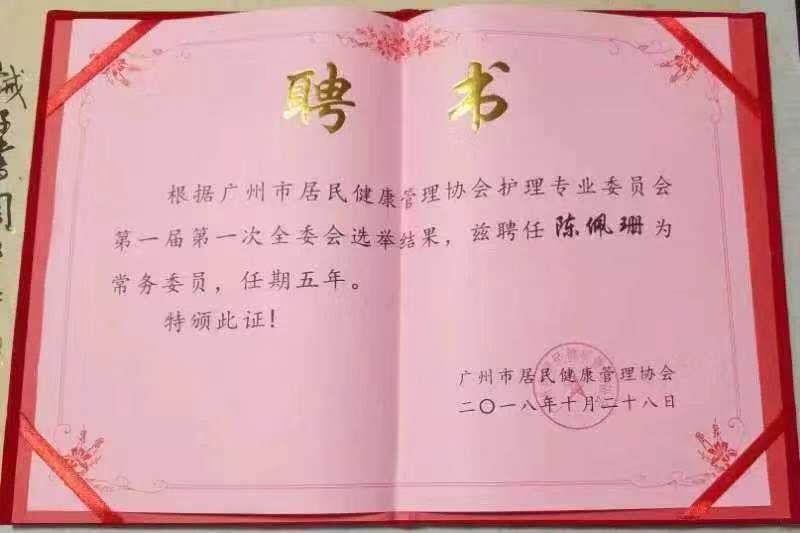 聘书
根据广州市居民健康管理协会护理专业委员会
第一届第一次全委会选举结果，兹聘任陈佩珊为
常务委员，任期五年。
特颁此证！
广州市居民健康管理协会
二〇一八年十月二十八日